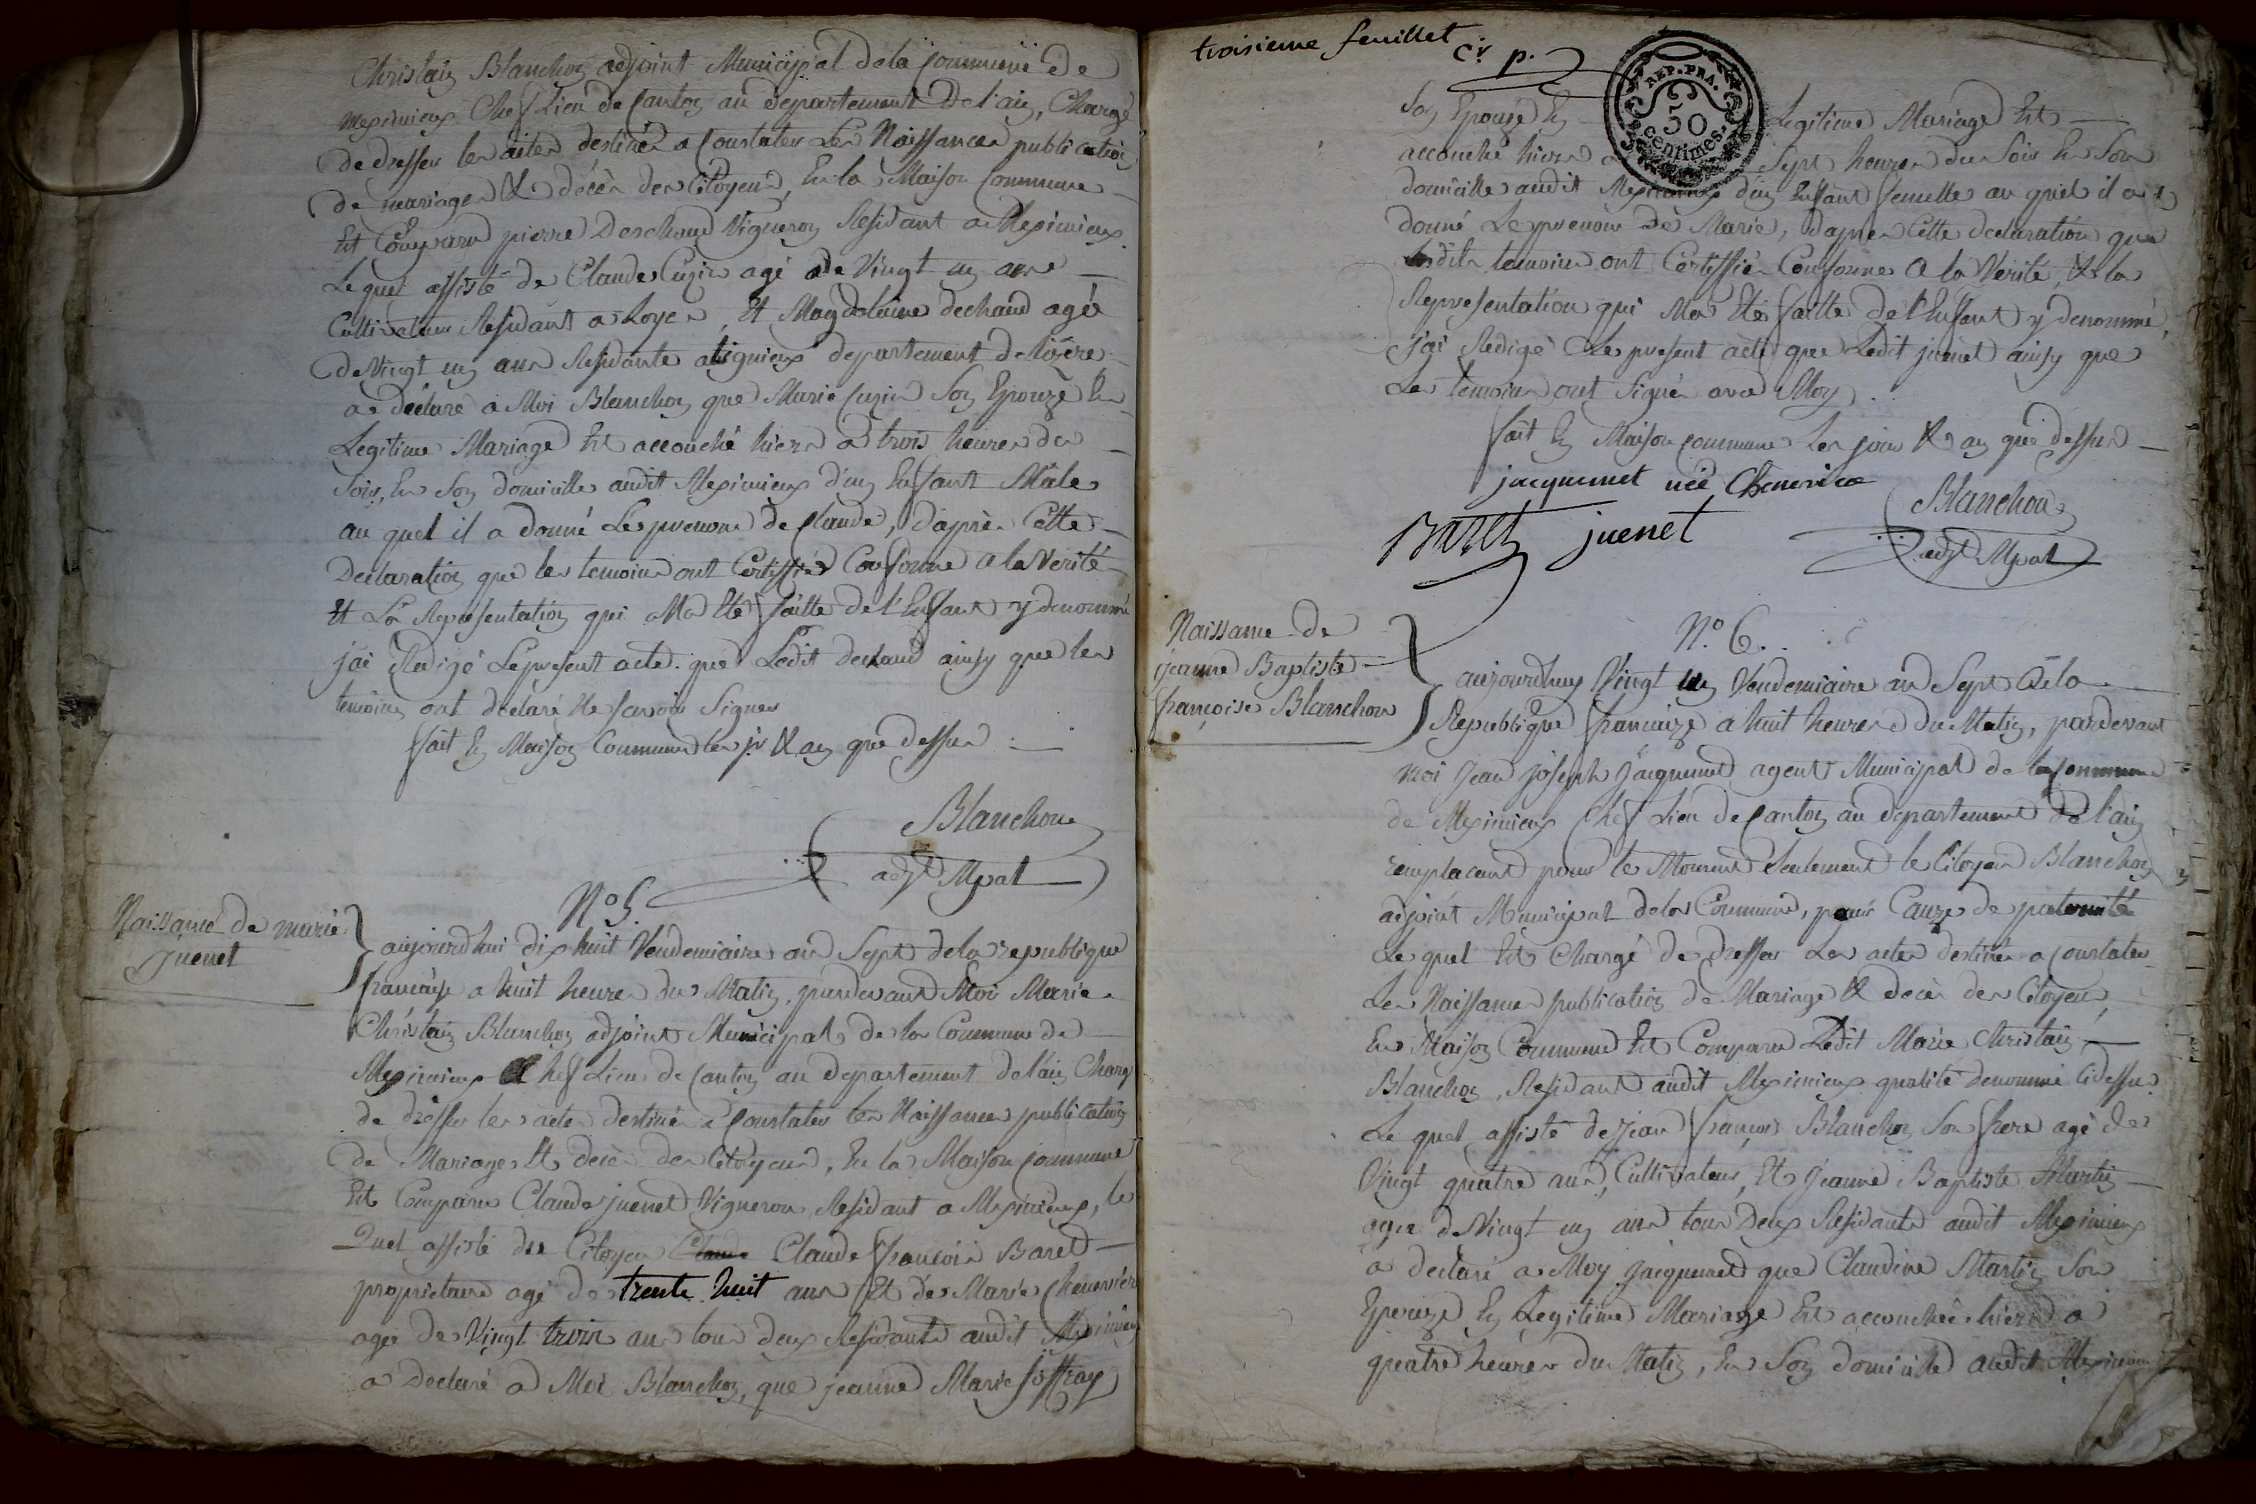 Christain Blanchon adjoint Municipal de la Commune de
Meximieux Chef Lieu de Canton au departement De l'ain, Chargé
de dresser les actes destinés a Constater Les Naissances publication
de mariages & décès des Citoyens, En la Maison Commune
Est Comparu pierre Deschaud Vigneron Residant a Meximieux
Lequel assisté de Claude Cuzin agé de Vingt un ans
Cultivateur Residant a Loyes, Et Magdelaine dechaud agée
de Vingt un ans Residante a departement de
a déclaré a Moi Blanchon que Marie Cuzin Son Epouze En
Legitime Mariage Est accouché hiers a trois heures du
Soir, En Son domicille audit Meximieux d'un Enfant Mâle
au quel il a donné Le prenom de Claude, d'après Cette
Declaration que les temoins ont Certiffiés Conforme a la Verité
Et La Representation qui Ma Eté faitte de l'Enfant y denommé
j'ai Redigé Le present acte que Ledit dechaud ainsy que les
temoins ont déclaré Ne savoir Signer
fait En Maison Commune les jr & an que dessus
Blanchon
adjt Mpal
No 5.
Naissance de marie
Juenet
aujourdhui dix huit Vendemiaire an Sept de la republique
francaise a huit heures du Matin, pardevant Moi Marie
Christain Blanchon adjoint Municipal de la Commune de
Meximieux Chef Lieu de Canton au departement de l'ain Chargé
de dresser les actes destinés a Constater les Naissances publication
de Mariages Et décès des Citoyens, En la Maison Commune
Est Comparu Claude juenet Vigneron Residant a Meximieux, le
Quel assisté du Citoyen Claude Claude francois Baret
proprietaire agé de trente huit ans Et de Marie Chenevier
agée de Vingt trois ans tous deux Residants audit Meximieux
a Declaré a Moi Blanchon, que jeanne Marie joffray
troisieme feuillet
cr. p.
REP. FRA.
50
centimes
Son Epouze En Legitime Mariage Est
accouché hiers a Sept heures du Soir En Son
domicille audit Meximieux d'un Enfant femelle au quel il a
donné Le prenom de Marie, d'apres Cette declaration que
Lesdits temoins ont Certiffiés Conforme a la Verité, & la
Representation qui Ma Eté faitte de l'Enfant y denommé,
j'ai Redigé Le present acte que Ledit juenet ainsy que
Les temoins ont Signés avec Moy
fait En Maison Commune les jour & an que dessus
jacquemet née Chenevier
Blanchon
Baret juenet
adjt Mpal
No. 6.
Naissance de
jeanne Baptiste
françoise Blanchon
aujourdhuy Vingt un Vendemiaire an Sept de la
Republique francaize a huit heures du Matin, pardevant
moi Jean joseph Jacquemet agent Municipal de la Commune
de Meximieux Chef Lieu de Canton au departement de l'ain
remplacant pour le Moment Seulement le Citoyen Blanchon
adjoint Municipal de la Commune, pour Cauze de paternité
Le quel Est Chargé de dresser Les actes destinés a Constater
Les Naissances publication de Mariage & décès des Citoyens,
En Maison Commune Est Comparu Ledit Marie Christain
Blanchon, Residant audit Meximieux qualité denommé Cidessus
Le quel assisté de Jean françois Blanchon Son frere agé de
Vingt quatre ans, Cultivateur, Et Jeanne Baptiste Martin
agée de Vingt un ans tous Deux Residants audit Meximieux
a declaré a Moy Jacquemet que Claudine Martin Son
Epouze En Legitime Mariage Est accouchée hiers a
quatre heures du Matin, En Son domicille audit Meximieux